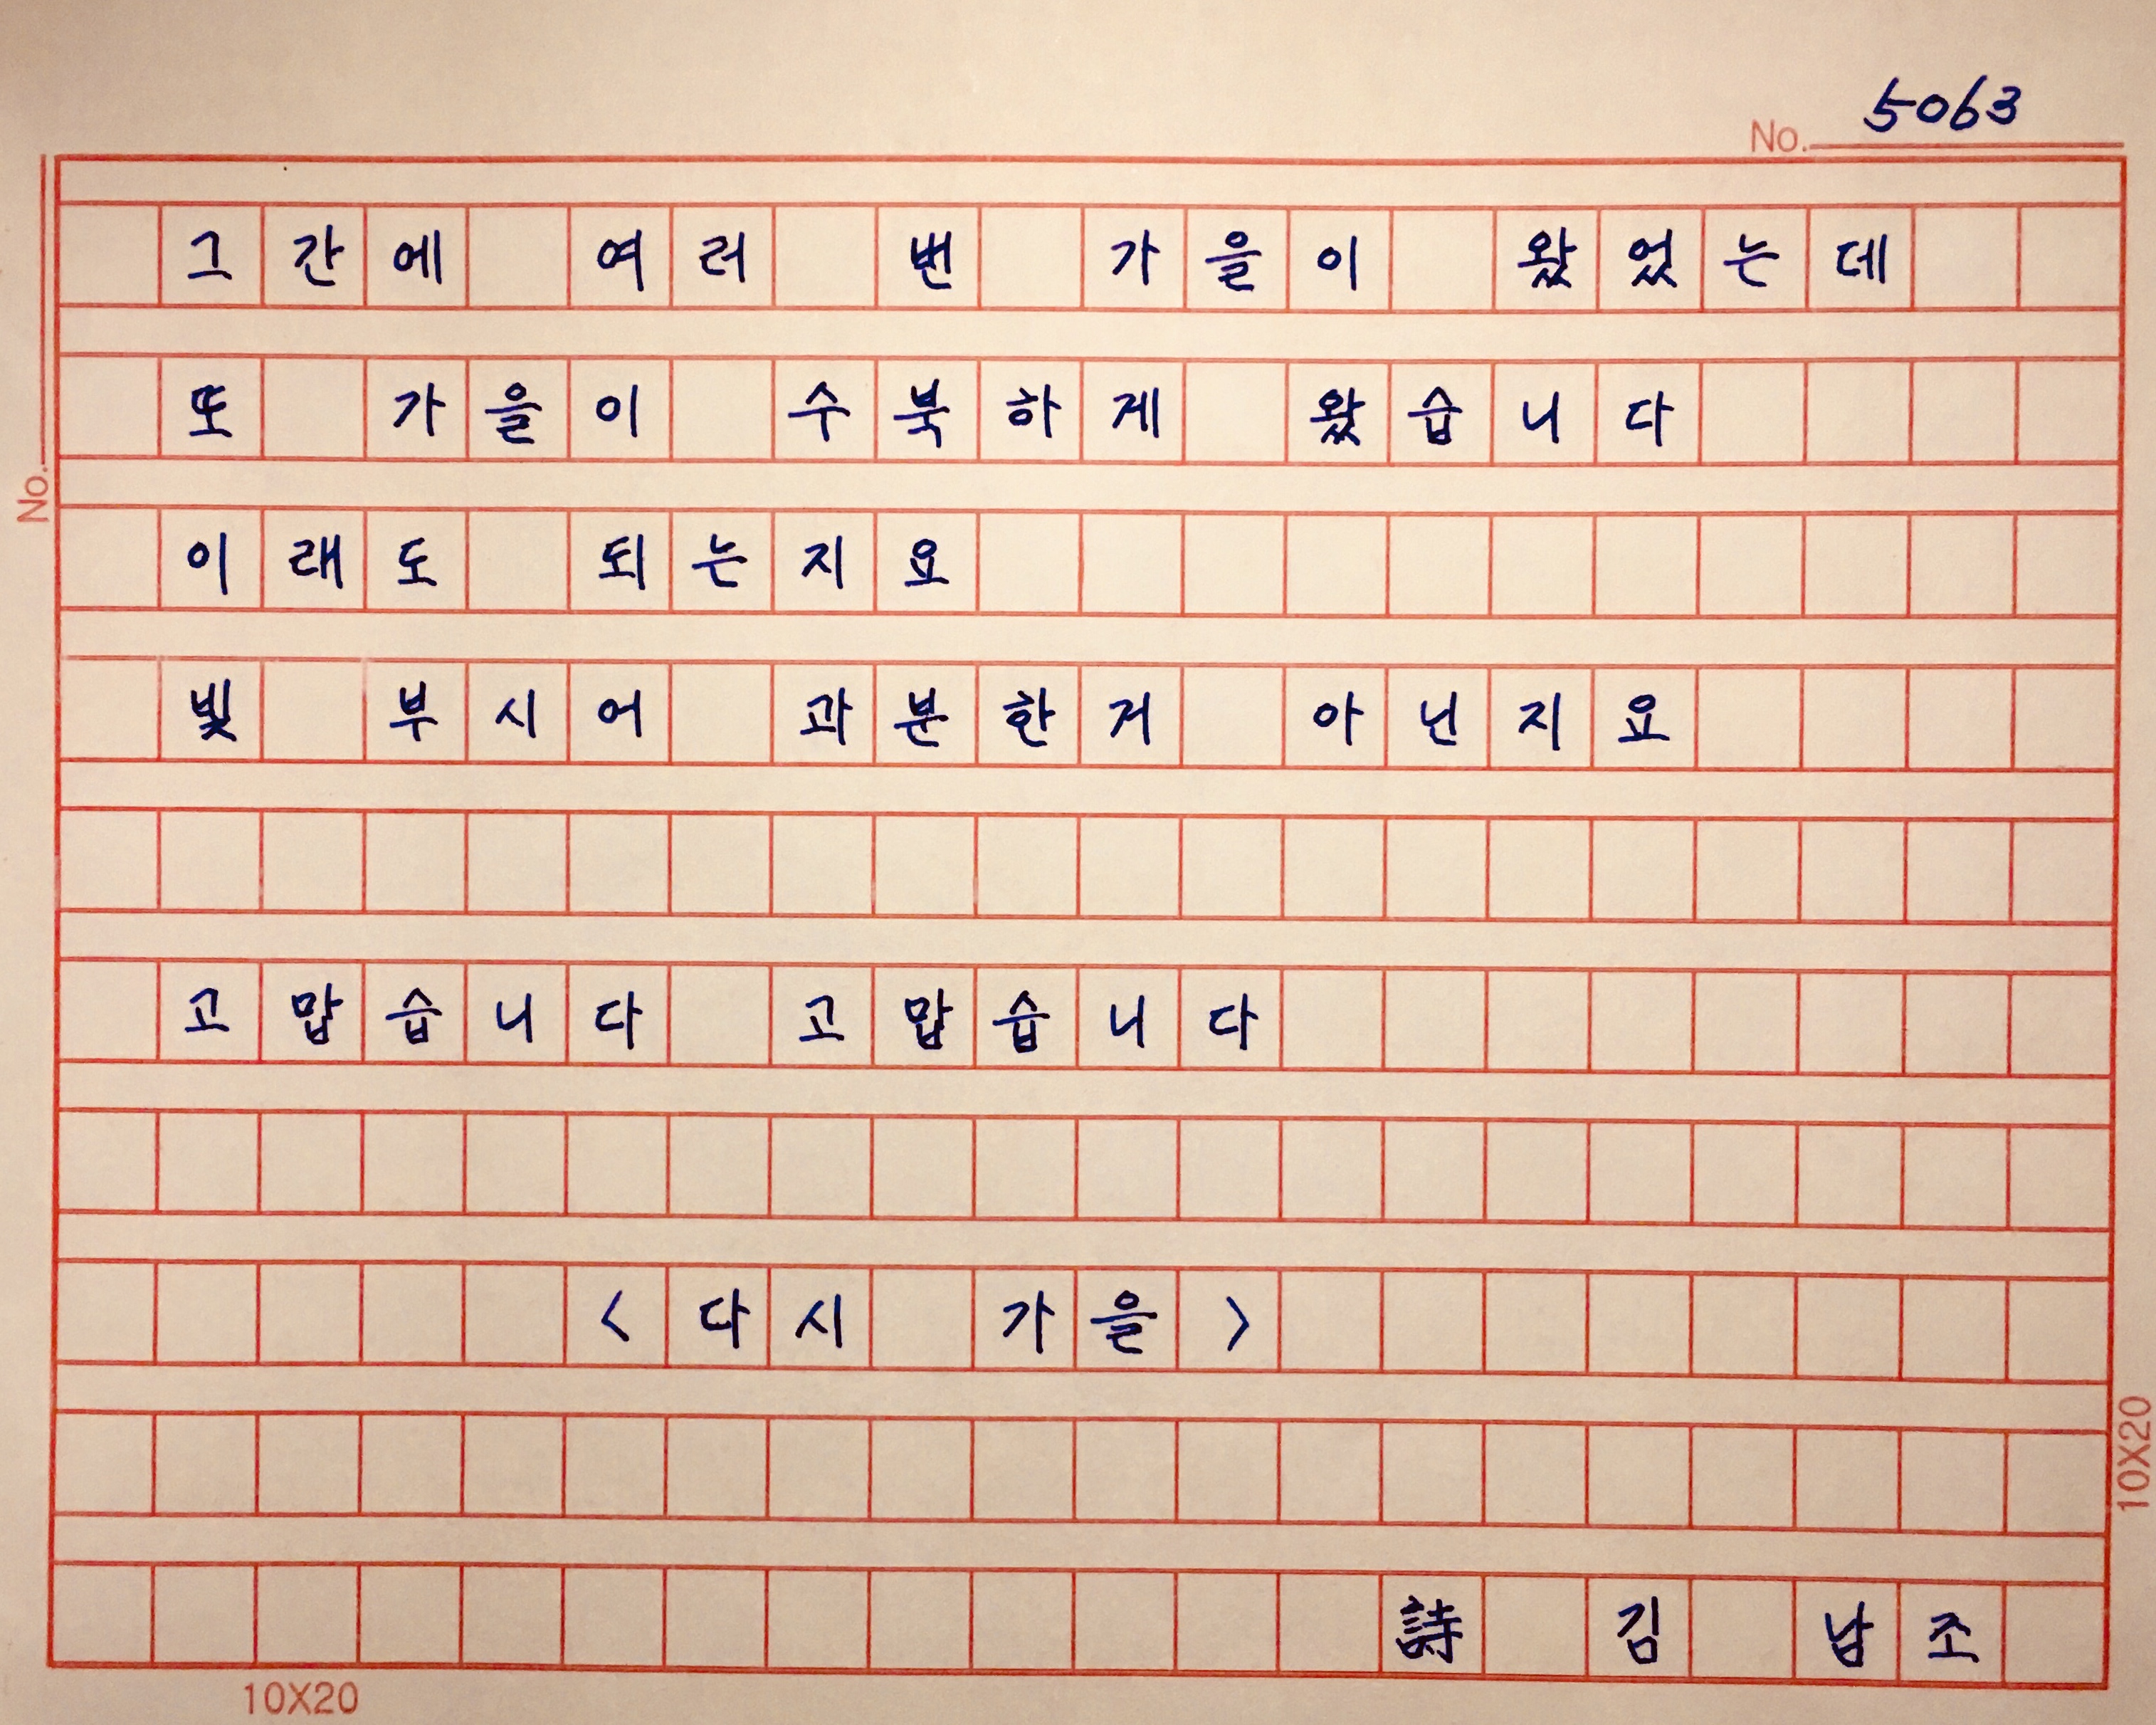 5063
No.
그간에 여러 번 가을이 왔었는데
또 가을이 수북하게 왔습니다
No.
이래도 되는지요
빛 부시어 과분한거 아닌지요
고맙습니다 고맙습니다
<다시 가을>
10X20
詩 김 남조
10X20